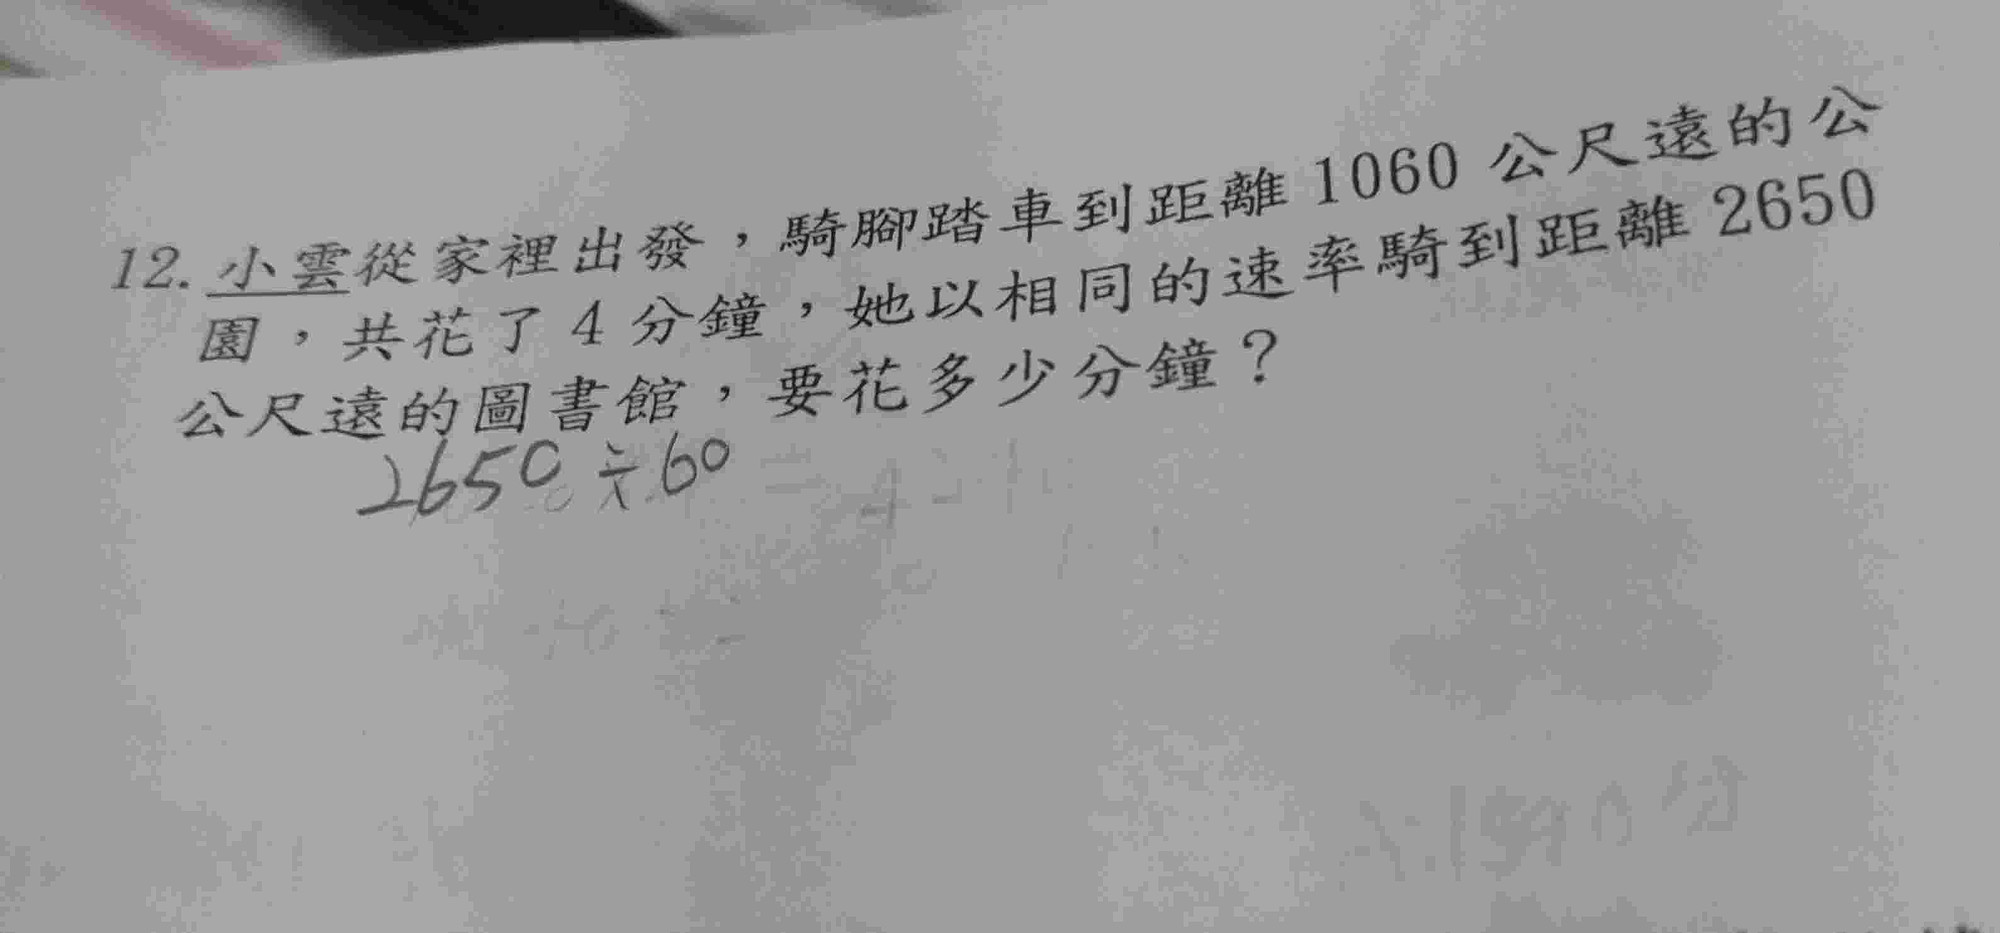 12. 小雲從家裡出發，騎腳踏車到距離 1060 公尺遠的公
園，共花了 4 分鐘，她以相同的速率騎到距離 2650
公尺遠的圖書館，要花多少分鐘？
2650 ÷ 60